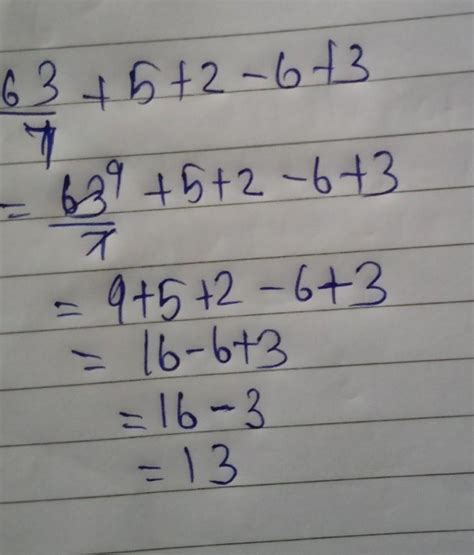 63/7 + 5+2 - 6+3
= 63/7 9 + 5+2 - 6+3
= 9+5+2 - 6+3
= 16-6+3
= 16 - 3
= 13